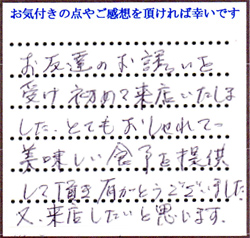 お気付きの点やご感想を頂ければ幸いです
お友達のお誘いを
受け初めて来店いたしま
した。とてもおしゃれで
美味しい食事を提供
して頂き有がとうございました
又、来店したいと思います。